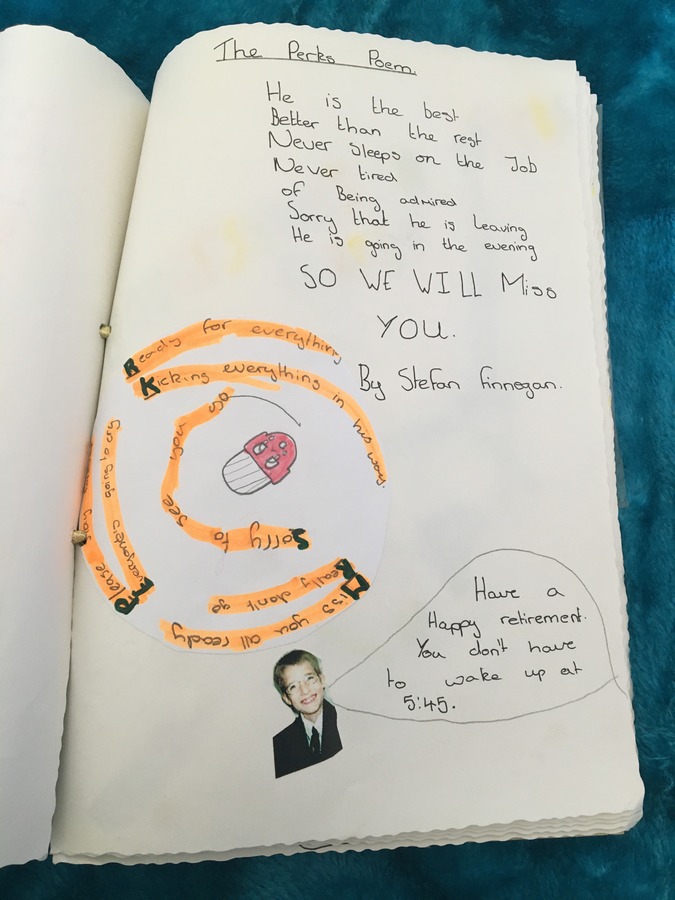 The Perks Poem.
He is the best
Better than the rest
Never sleeps on the Job
Never tired
of Being admired
Sorry that he is Leaving
He is going in the evening
SO WE WILL Miss
YOU.
By Stefan Finnegan.
Miss you all ready
Really don't go
Please
going to cry
Ready for everything
Kicking everything in his way.
Sorry to see you go
Have a
Happy retirement.
You don't have
to wake up at
5:45.